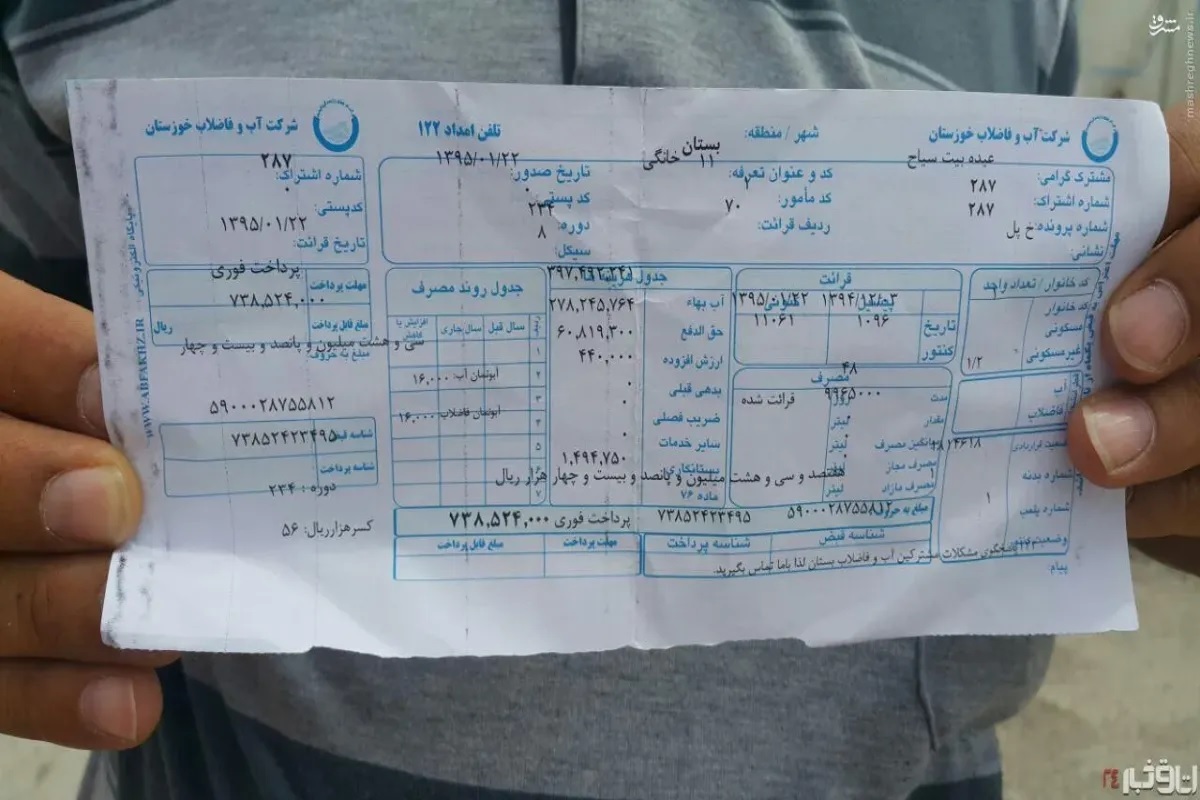 مشرق
mashreghnews.ir
شرکت آب و فاضلاب خوزستان
شهر / منطقه: بستان
تلفن امداد ۱۲۲
شرکت آب و فاضلاب خوزستان
مشترک گرامی: عبده بیت سیاح
شماره اشتراک: ۲۸۷
شماره پرونده: ۲۸۷
نشانی: خ پل
کد و عنوان تعرفه: ۱۱ خانگی
کد مأمور:
ردیف قرائت: ۷۰
تاریخ صدور: ۱۳۹۵/۰۱/۲۲
کد پستی: ۰
دوره: ۲۳۴
سیکل: ۸
کد خانوار / تعداد واحد
کد خانوار
مسکونی
غیرمسکونی
۱/۲
آب
فاضلاب
۱۴۶۱۸
شماره بدنه
شماره پلمپ
۱
پیام:
قرائت
۱۳۹۵/۰۱/۲۲
تاریخ
کنتور
۱۰۹۶
۱۱۰۶۱
مصرف
مدت ۴۸
مقدار لیتر ۹۹۶۵۰۰۰ قرائت شده
میانگین مصرف لیتر
مصرف مجاز
مصرف مازاد لیتر
جدول هزینه ها
آب بهاء ۳۹۷,۴۶۲,۲۴۱
حق الدفع ۲۷۸,۲۴۵,۷۶۴
ارزش افزوده ۶۰,۸۱۹,۳۰۰
بدهی قبلی ۴۴۰,۰۰۰
ضریب فصلی ۰
سایر خدمات ۰
بستانکاری ۰
ماده ۷۶ ۱,۴۹۴,۷۵۰
جدول روند مصرف
ردیف
سال قبل
سال جاری
افزایش یا کاهش
۱
۲
۳
۵
۷
آبونمان آب: ۱۶,۰۰۰
آبونمان فاضلاب: ۱۶,۰۰۰
هفتصد و سی و هشت میلیون و پانصد و بیست و چهار هزار ریال
۵۹۰۰۰۲۸۷۵۵۸۱۲
۷۳۸۵۲۴۲۳۴۹۵
پرداخت فوری
۷۳۸,۵۲۴,۰۰۰
شناسه قبض
شناسه پرداخت
مهلت پرداخت
مبلغ قابل پرداخت
پاسخگوی مشکلات مشترکین آب و فاضلاب بستان لذا باما تماس بگیرید.
شماره اشتراک: ۲۸۷
کدپستی: ۰
تاریخ قرائت: ۱۳۹۵/۰۱/۲۲
مهلت پرداخت پرداخت فوری
مبلغ قابل پرداخت ۷۳۸,۵۲۴,۰۰۰ ریال
مبلغ به حروف:
سی و هشت میلیون و پانصد و بیست و چهار
شناسه قبض ۵۹۰۰۰۲۸۷۵۵۸۱۲
شناسه پرداخت ۷۳۸۵۲۴۲۳۴۹۵
دوره: ۲۳۴
کسرهزارریال: ۵۶
WWW.ABFAKHZ.IR
پایگاه الکترونیکی:
اتاق خبر ۲۴